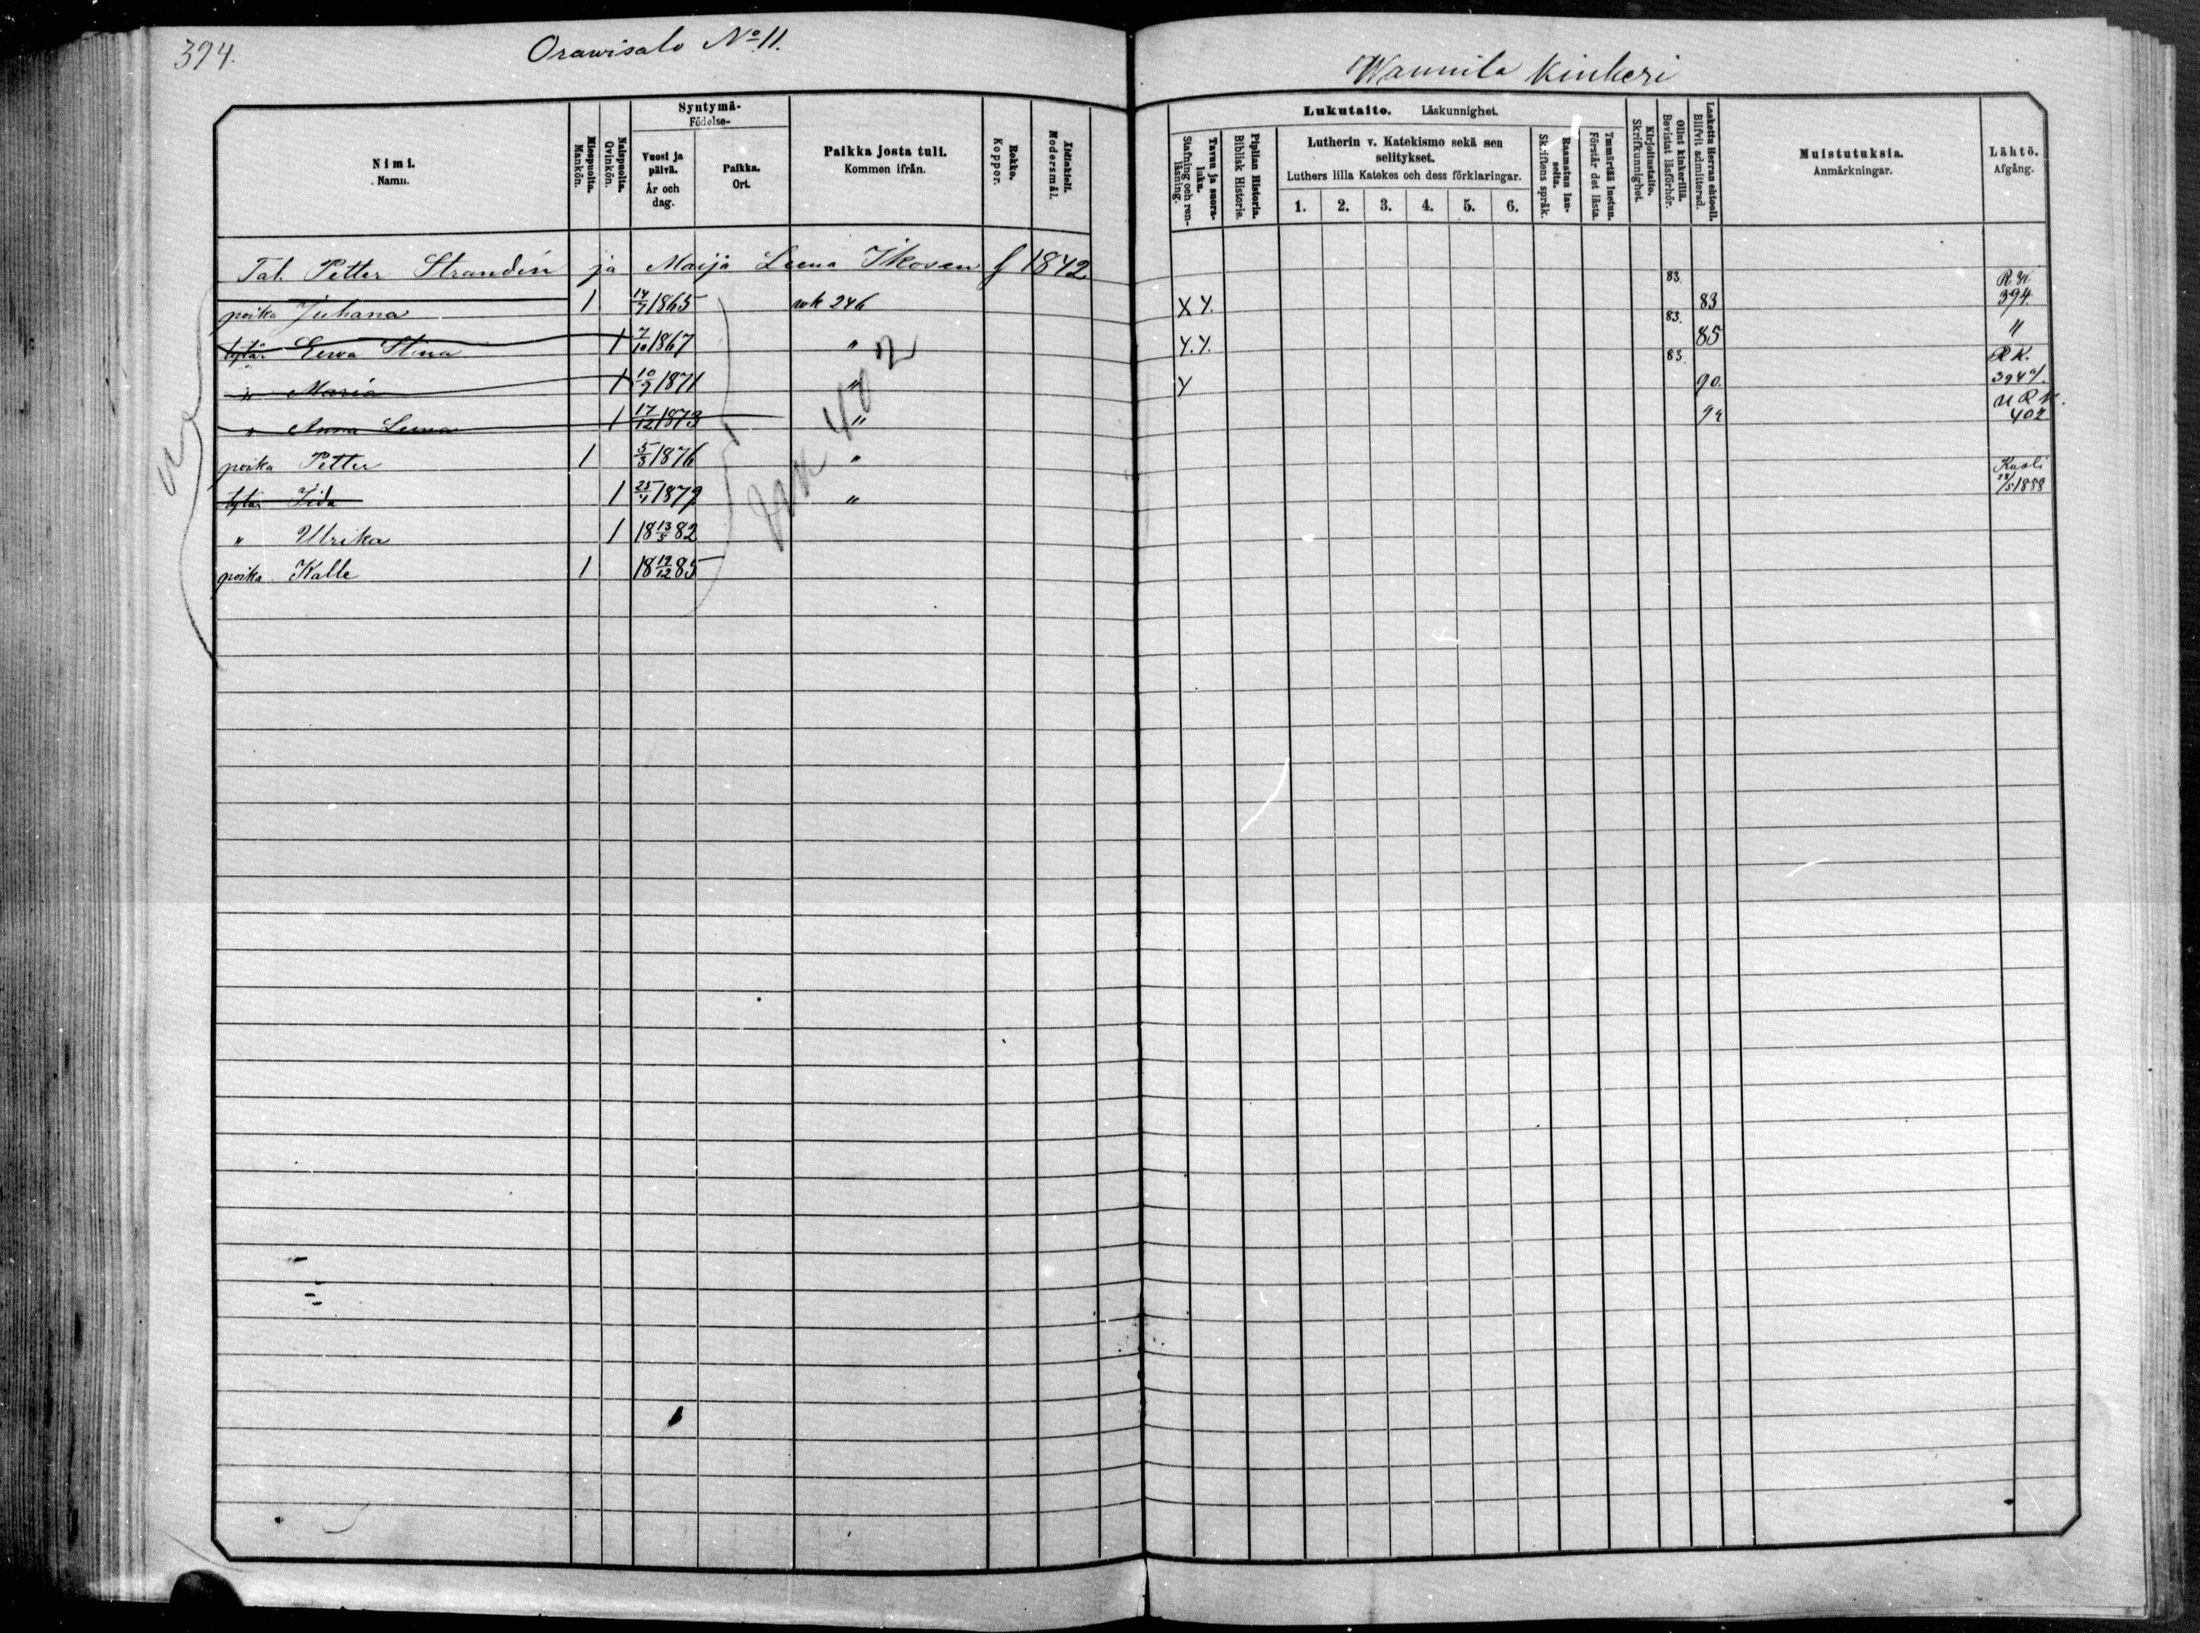 394.
Orawisalo No 11.
Wannila kinkeri
Nimi.
Namn.
Miespuolta.
Mankön.
Naispuolta.
Qvinkön.
Syntymä-
Födelse-
Vuosi ja päivä.
År och dag.
Paikka.
Ort.
Paikka josta tuli.
Kommen ifrån.
Rokko.
Koppor.
Äidinkieli.
Modersmål.
Lukutaito. Läskunnighet.
Tavuu ja suora-luku.
Stafning och ren-läsning.
Piplian Historia.
Biblisk Historie.
Lutherin v. Katekismo sekä sen selitykset.
Luthers lilla Katekes och dess förklaringar.
1. 2. 3. 4. 5. 6.
Raamatun lau-seita.
Skriftens språk.
Ymmärtää luetun.
Förstår det lästa.
Kirjoitustaito.
Skrifkunnighet.
Ollut kinkerillä.
Bevistat läsförhör.
Laskettu Herran ehtooll.
Blifvit admitterad.
Muistutuksia.
Anmärkningar.
Lähtö.
Afgång.
Tal. Petter Strandén ja Maija Leena Ikosen f 1842
poika Juhana 1 14/7 1865 wk 246 X Y. 83. 83 R. K. 394.
tytär Eewa Stina 1 7/10 1867 " Y. Y. 83. 85 "
" Maria 1 10/9 1871 " Y 83 90. R K. 394 a/.
" Anna Leena 1 17/12 1873 " 92 U R K. 402
poika Petter 1 5/3 1876 "
tytär Iida 1 25/4 1879 " Kuoli 28/5 1888
" Ulrika 1 18 13/5 82
poika Kalle 1 18 19/12 85
402